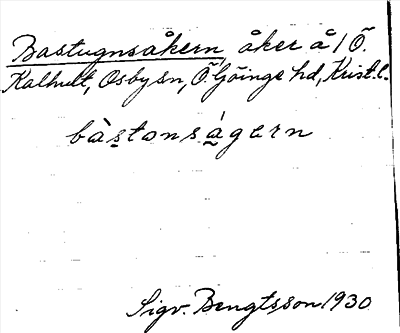 Bastugnsåkern åker å 1 Ö.
Kalhult, Osby sn, Ö. Göinge hd, Krist. l.
bàstonságern
Sigv. Bengtsson 1930